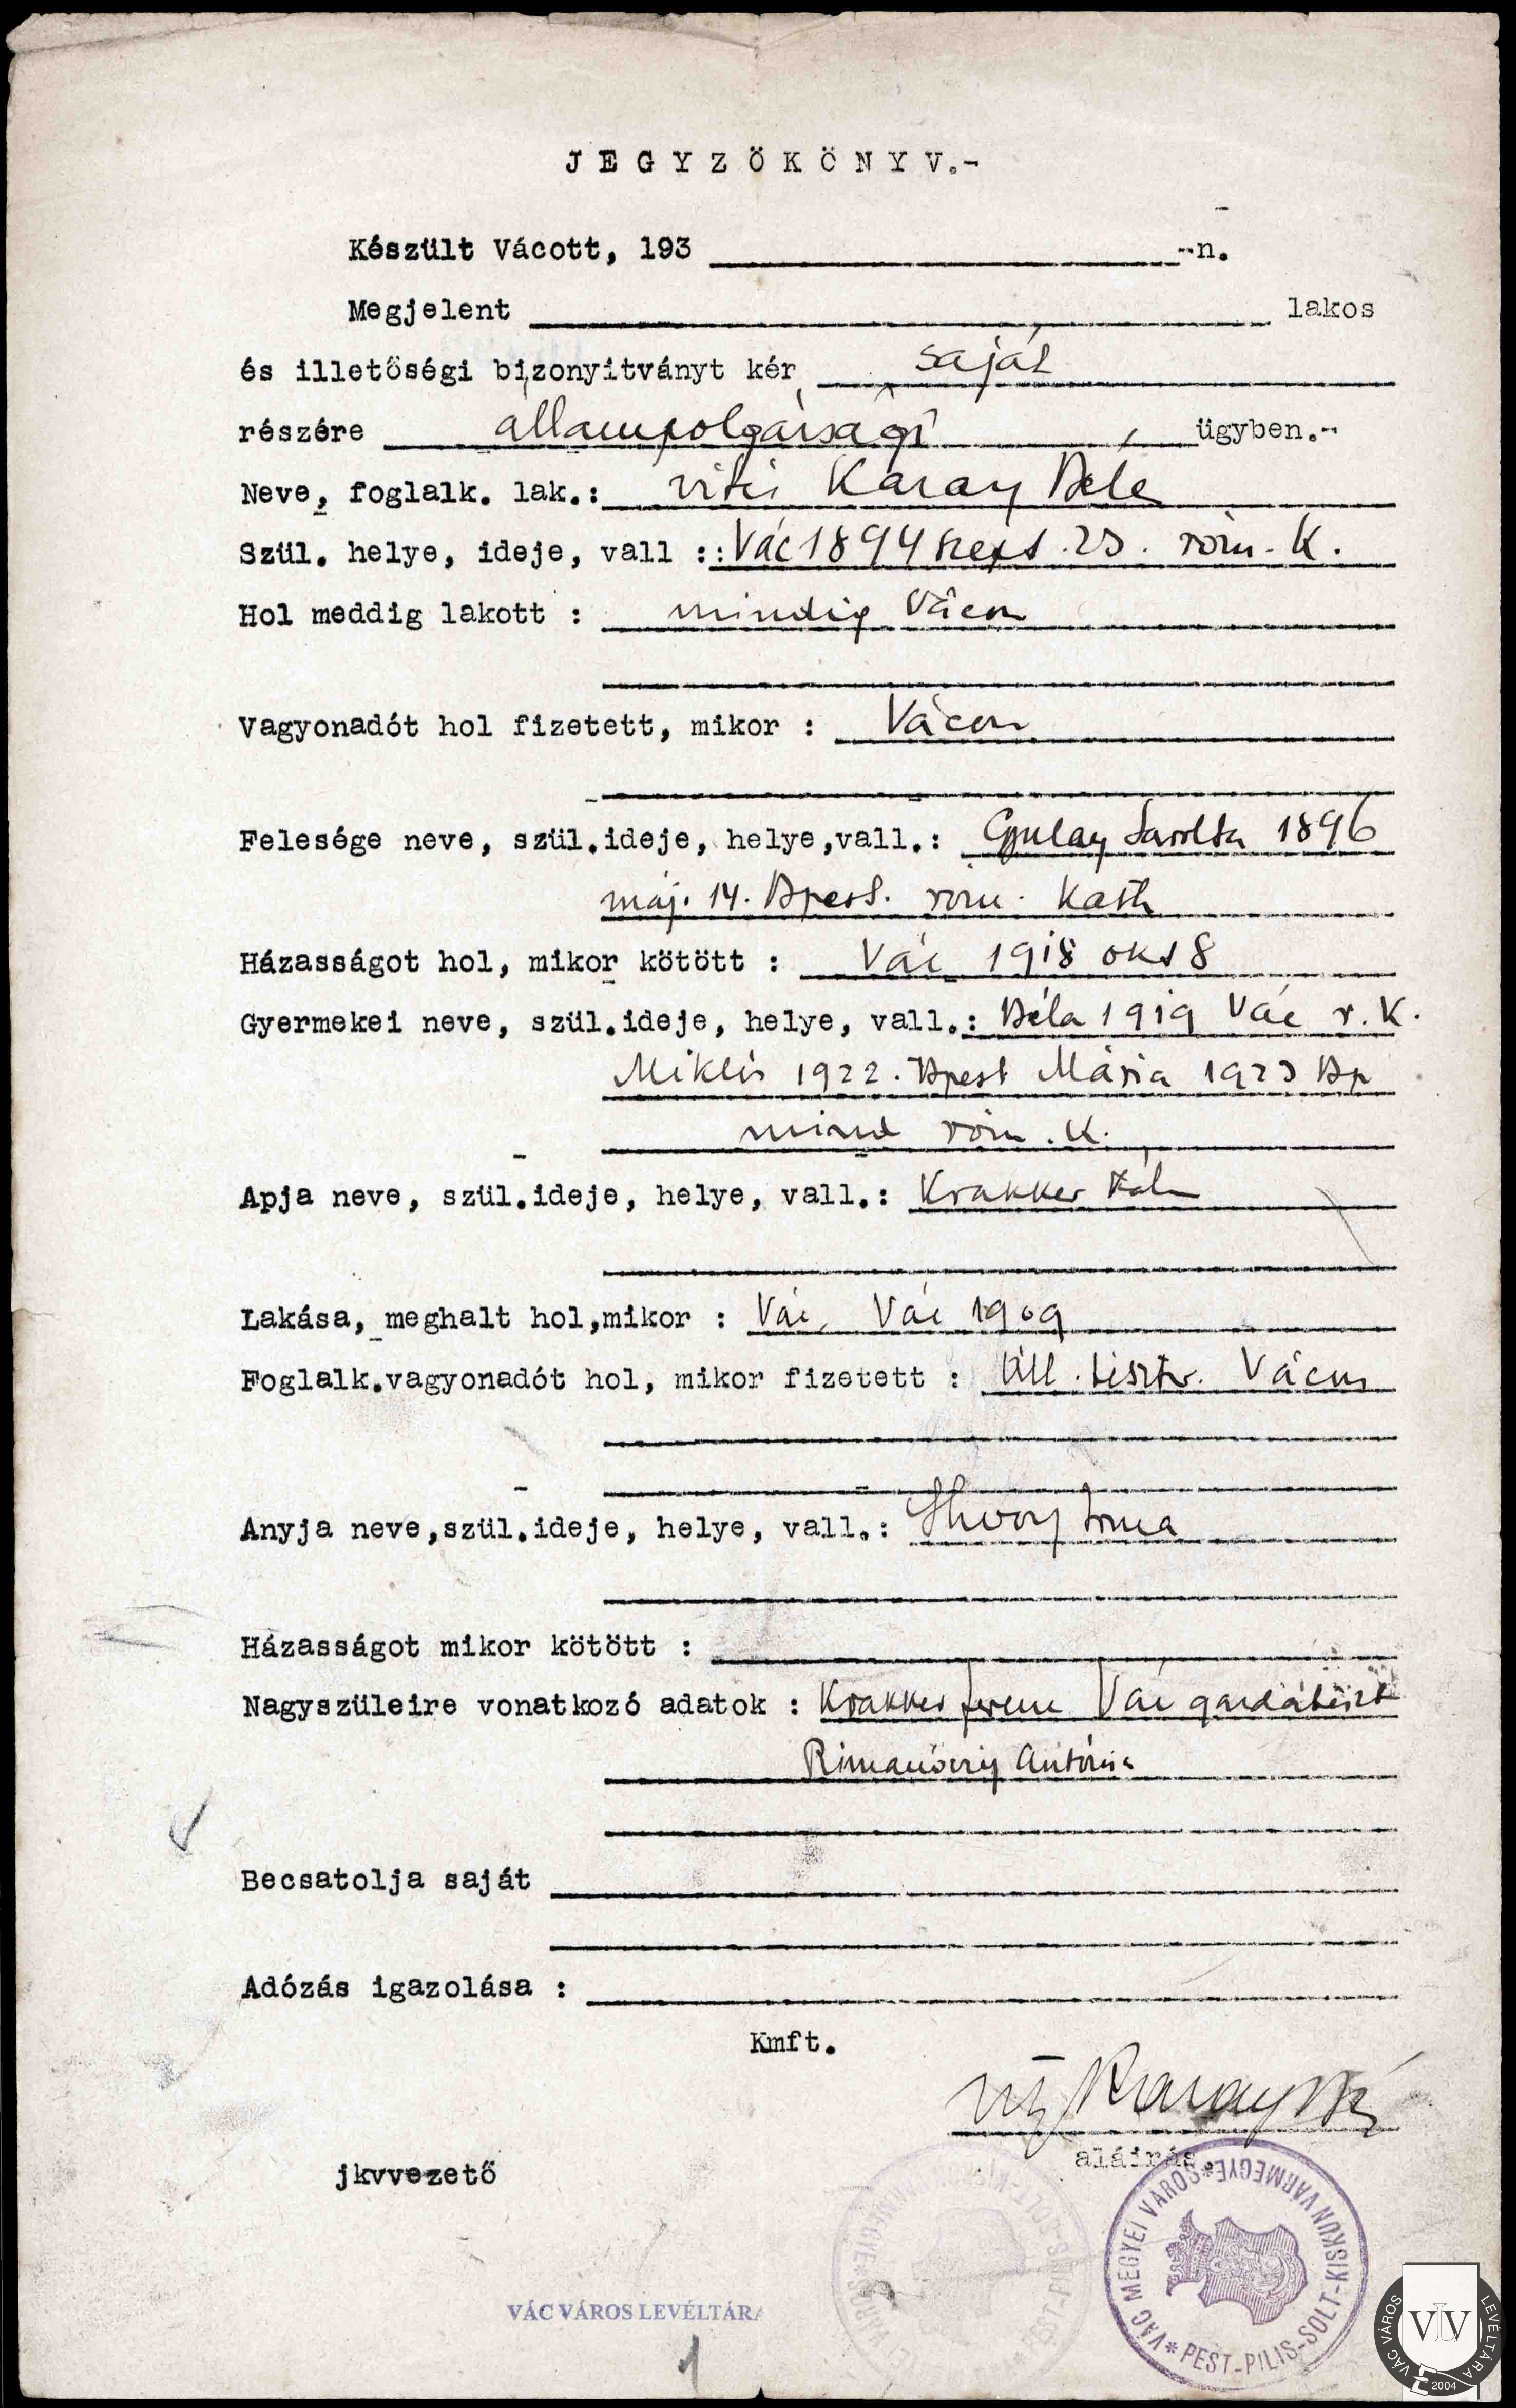 JEGYZÖKÖNYV.-
Készült Vácott, 193 -n.
Megjelent lakos
és illetöségi bizonyitványt kér saját
részére állampolgársági ügyben.-
Neve, foglalk. lak.: vitéz Káray Béla
Szül. helye, ideje, vall :: Vác 1894 szept. 23. róm. K.
Hol meddig lakott : mindig Vácon
Vagyonadót hol fizetett, mikor : Vácon
Felesége neve, szül.ideje, helye,vall.: Gyulay Sarolta 1896
máj. 14. Bpest. róm. Kath
Házasságot hol, mikor kötött : Vác 1918 okt 8
Gyermekei neve, szül.ideje, helye, vall.: Béla 1919 Vác r. K.
Miklós 1922. Bpest Mária 1923 Bp
mind róm. K.
Apja neve, szül.ideje, helye, vall.: Krakker
Lakása, meghalt hol,mikor : Vác, Vác 1909
Foglalk.vagyonadót hol, mikor fizetett : Áll. tisztv. Vácon
Anyja neve,szül.ideje, helye, vall.: Irma
Házasságot mikor kötött :
Nagyszüleire vonatkozó adatok : Krakker Ferenc Vác gazdátiszt
Rimanóczy Antónia
Becsatolja saját
Adózás igazolása :
Kmft.
vitéz Káray Béla
aláirás.
jkvvezető
VÁC MEGYEI VÁROS * PEST-PILIS-SOLT-KISKUN VÁRMEGYE *
VÁC VÁROS LEVÉLTÁRA
1
VÁC VÁROS LEVÉLTÁRA
VLV
2004